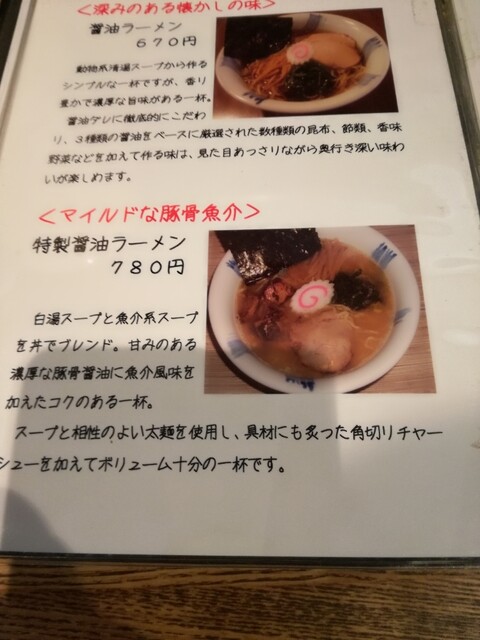 ＜深みのある懐かしの味＞
醤油ラーメン
６７０円
動物系清湯スープから作る
シンプルな一杯ですが、香り
豊かで濃厚な旨味がある一杯。
醤油ダレに徹底的にこだわ
り、３種類の醤油をベースに厳選された数種類の昆布、節類、香味
野菜などを加えて作る味は、見た目あっさりながら奥行き深い味わ
いが楽しめます。
＜マイルドな豚骨魚介＞
特製醤油ラーメン
７８０円
白湯スープと魚介系スープ
を丼でブレンド。甘みのある
濃厚な豚骨醤油に魚介風味を
加えたコクのある一杯。
スープと相性のよい太麺を使用し、具材にも炙った角切りチャー
シューを加えてボリューム十分の一杯です。